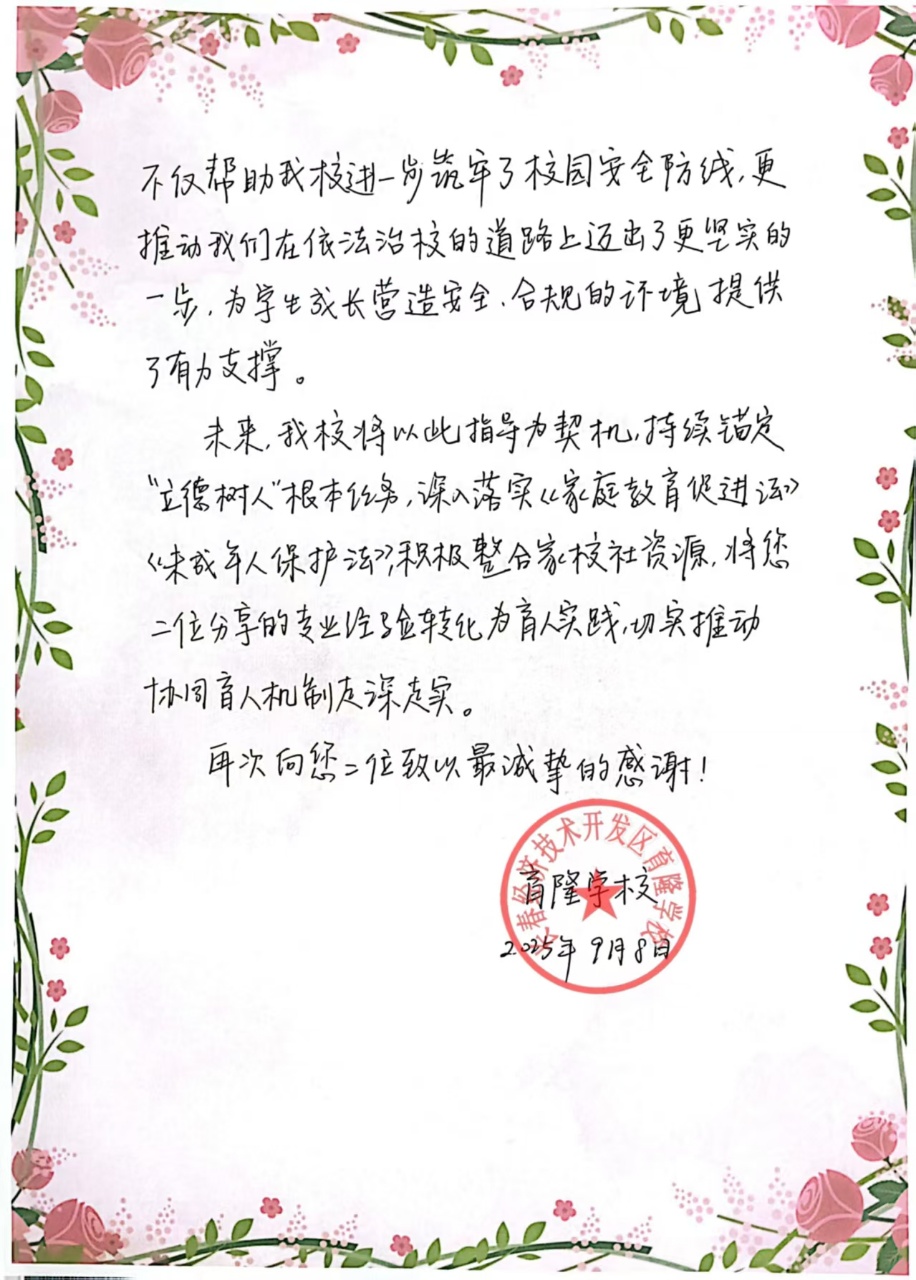 不仅帮助我校进一步筑牢了校园安全防线,更
推动我们在依法治校的道路上迈出了更坚实的
一步,为学生成长营造安全、合规的环境提供
了有力支撑。
未来,我校将以此指导为契机,持续锚定
“立德树人”根本任务,深入落实《家庭教育促进法》
《未成年人保护法》,积极整合家校社资源,将您
二位分享的专业经验转化为育人实践,切实推动
协同育人机制走深走实。
再次向您二位致以最诚挚的感谢!
长春经济技术开发区育隆学校
育隆学校
2025年9月8日